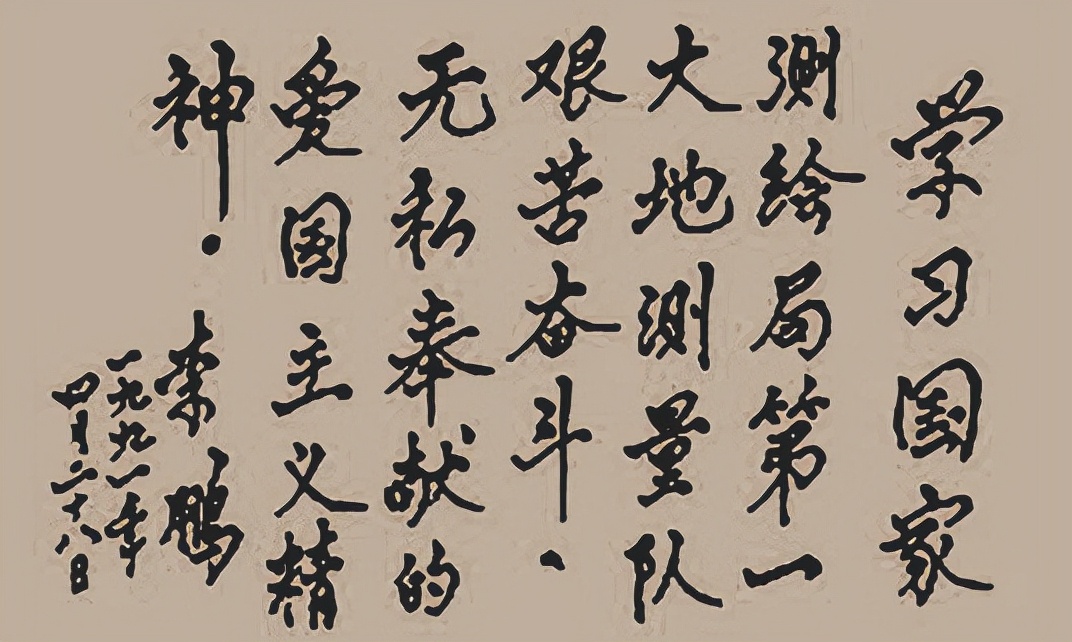 学习国家
测绘局第一
大地测量队
艰苦奋斗、
无私奉献的
爱国主义精
神.
李鹏
一九九一年
四月二十八日